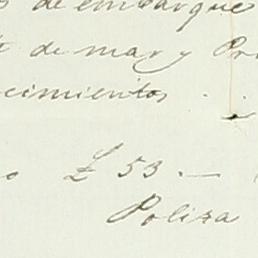 de embarque
de mar y Pri
cimientos . .
£ 53 . —
Poliza